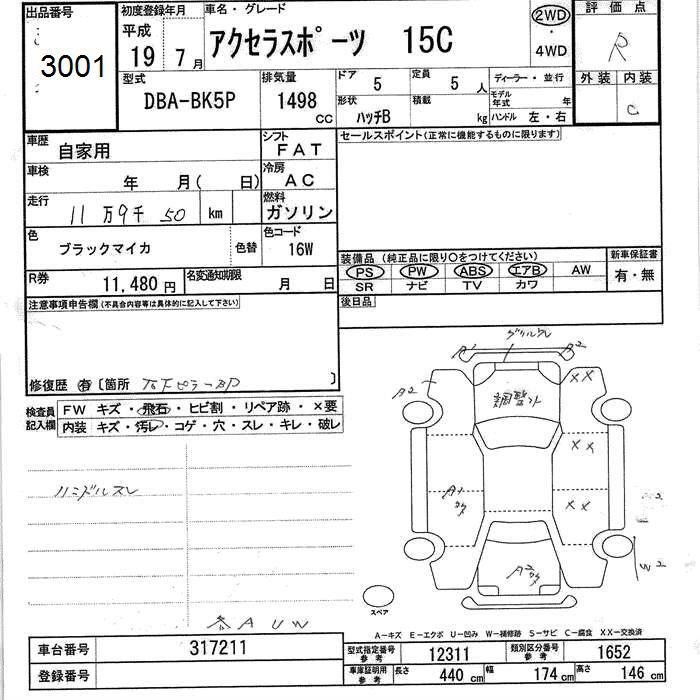 出品番号
3001
初度登録年月
平成
19 7月
車名・グレード
アクセラスポーツ 15C
2WD
4WD
評価点
R
外装 内装
C
型式
DBA-BK5P
排気量
1498 CC
ドア 5
定員 5人
形状 ハッチB
積載 kg
ディーラー・並行
モデル年式 年
ハンドル 左・右
車歴
自家用
シフト
FAT
車検
年 月( 日)
冷房
AC
走行
11万9千50 km
燃料
ガソリン
色
ブラックマイカ
色替
色コード
16W
R券
11,480円
名変通知期限
月 日
セールスポイント(正常に機能するものに限ります)
装備品 (純正品に限り○をつけてください)
PS PW ABS エアB AW
SR ナビ TV カワ
新車保証書
有・無
後日品
注意事項申告欄(不具合内容等は具体的に記入して下さい)
修復歴 有 〔箇所 〕
検査員記入欄
FW キズ・飛石・ヒビ割・リペア跡・×要
内装 キズ・汚レ・コゲ・穴・スレ・キレ・破レ
ハンドルスレ
A U W
グリルワレ
A2 A2
A2
調整
XX
XX
XX
W2
スペア
A−キズ E−エクボ U−凹み W−補修跡 S−サビ C−腐食 XX−交換済
車台番号 317211
登録番号
型式指定番号 参考 12311
類別区分番号 参考 1652
車庫証明用 参考 長さ 440 cm 幅 174 cm 高さ 146 cm